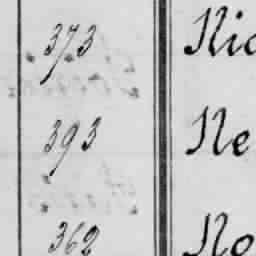 373 Nic
393 Ne
362 No